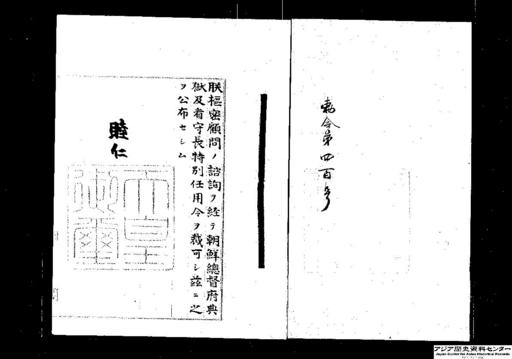 勅令第四百号
朕樞密顧問ノ諮詢ヲ経テ朝鮮總督府典
獄及看守長特別任用令ヲ裁可シ茲ニ之
ヲ公布セシム
睦仁
天皇
御璽
アジア歴史資料センター
Japan Center for Asian Historical Records